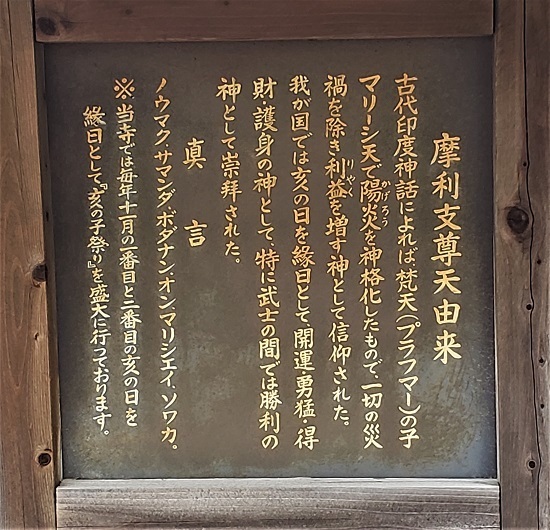 摩利支尊天由来
古代印度神話によれば梵天(プラフマー)の子
マリーシ天で陽炎を神格化したもので、一切の災
かげろう
禍を除き利益を増す神として信仰された。
りやく
我が国では亥の日を縁日として開運・勇猛・得
財・護身の神として、特に武士の間では勝利の
神として崇拝された。
真言
ノウマク、サマンダ、ボダナン、オン、マリシエイ、ソワカ。
※当寺では毎年十一月の一番目と二番目の亥の日を
縁日として『亥の子祭り』を盛大に行っております。